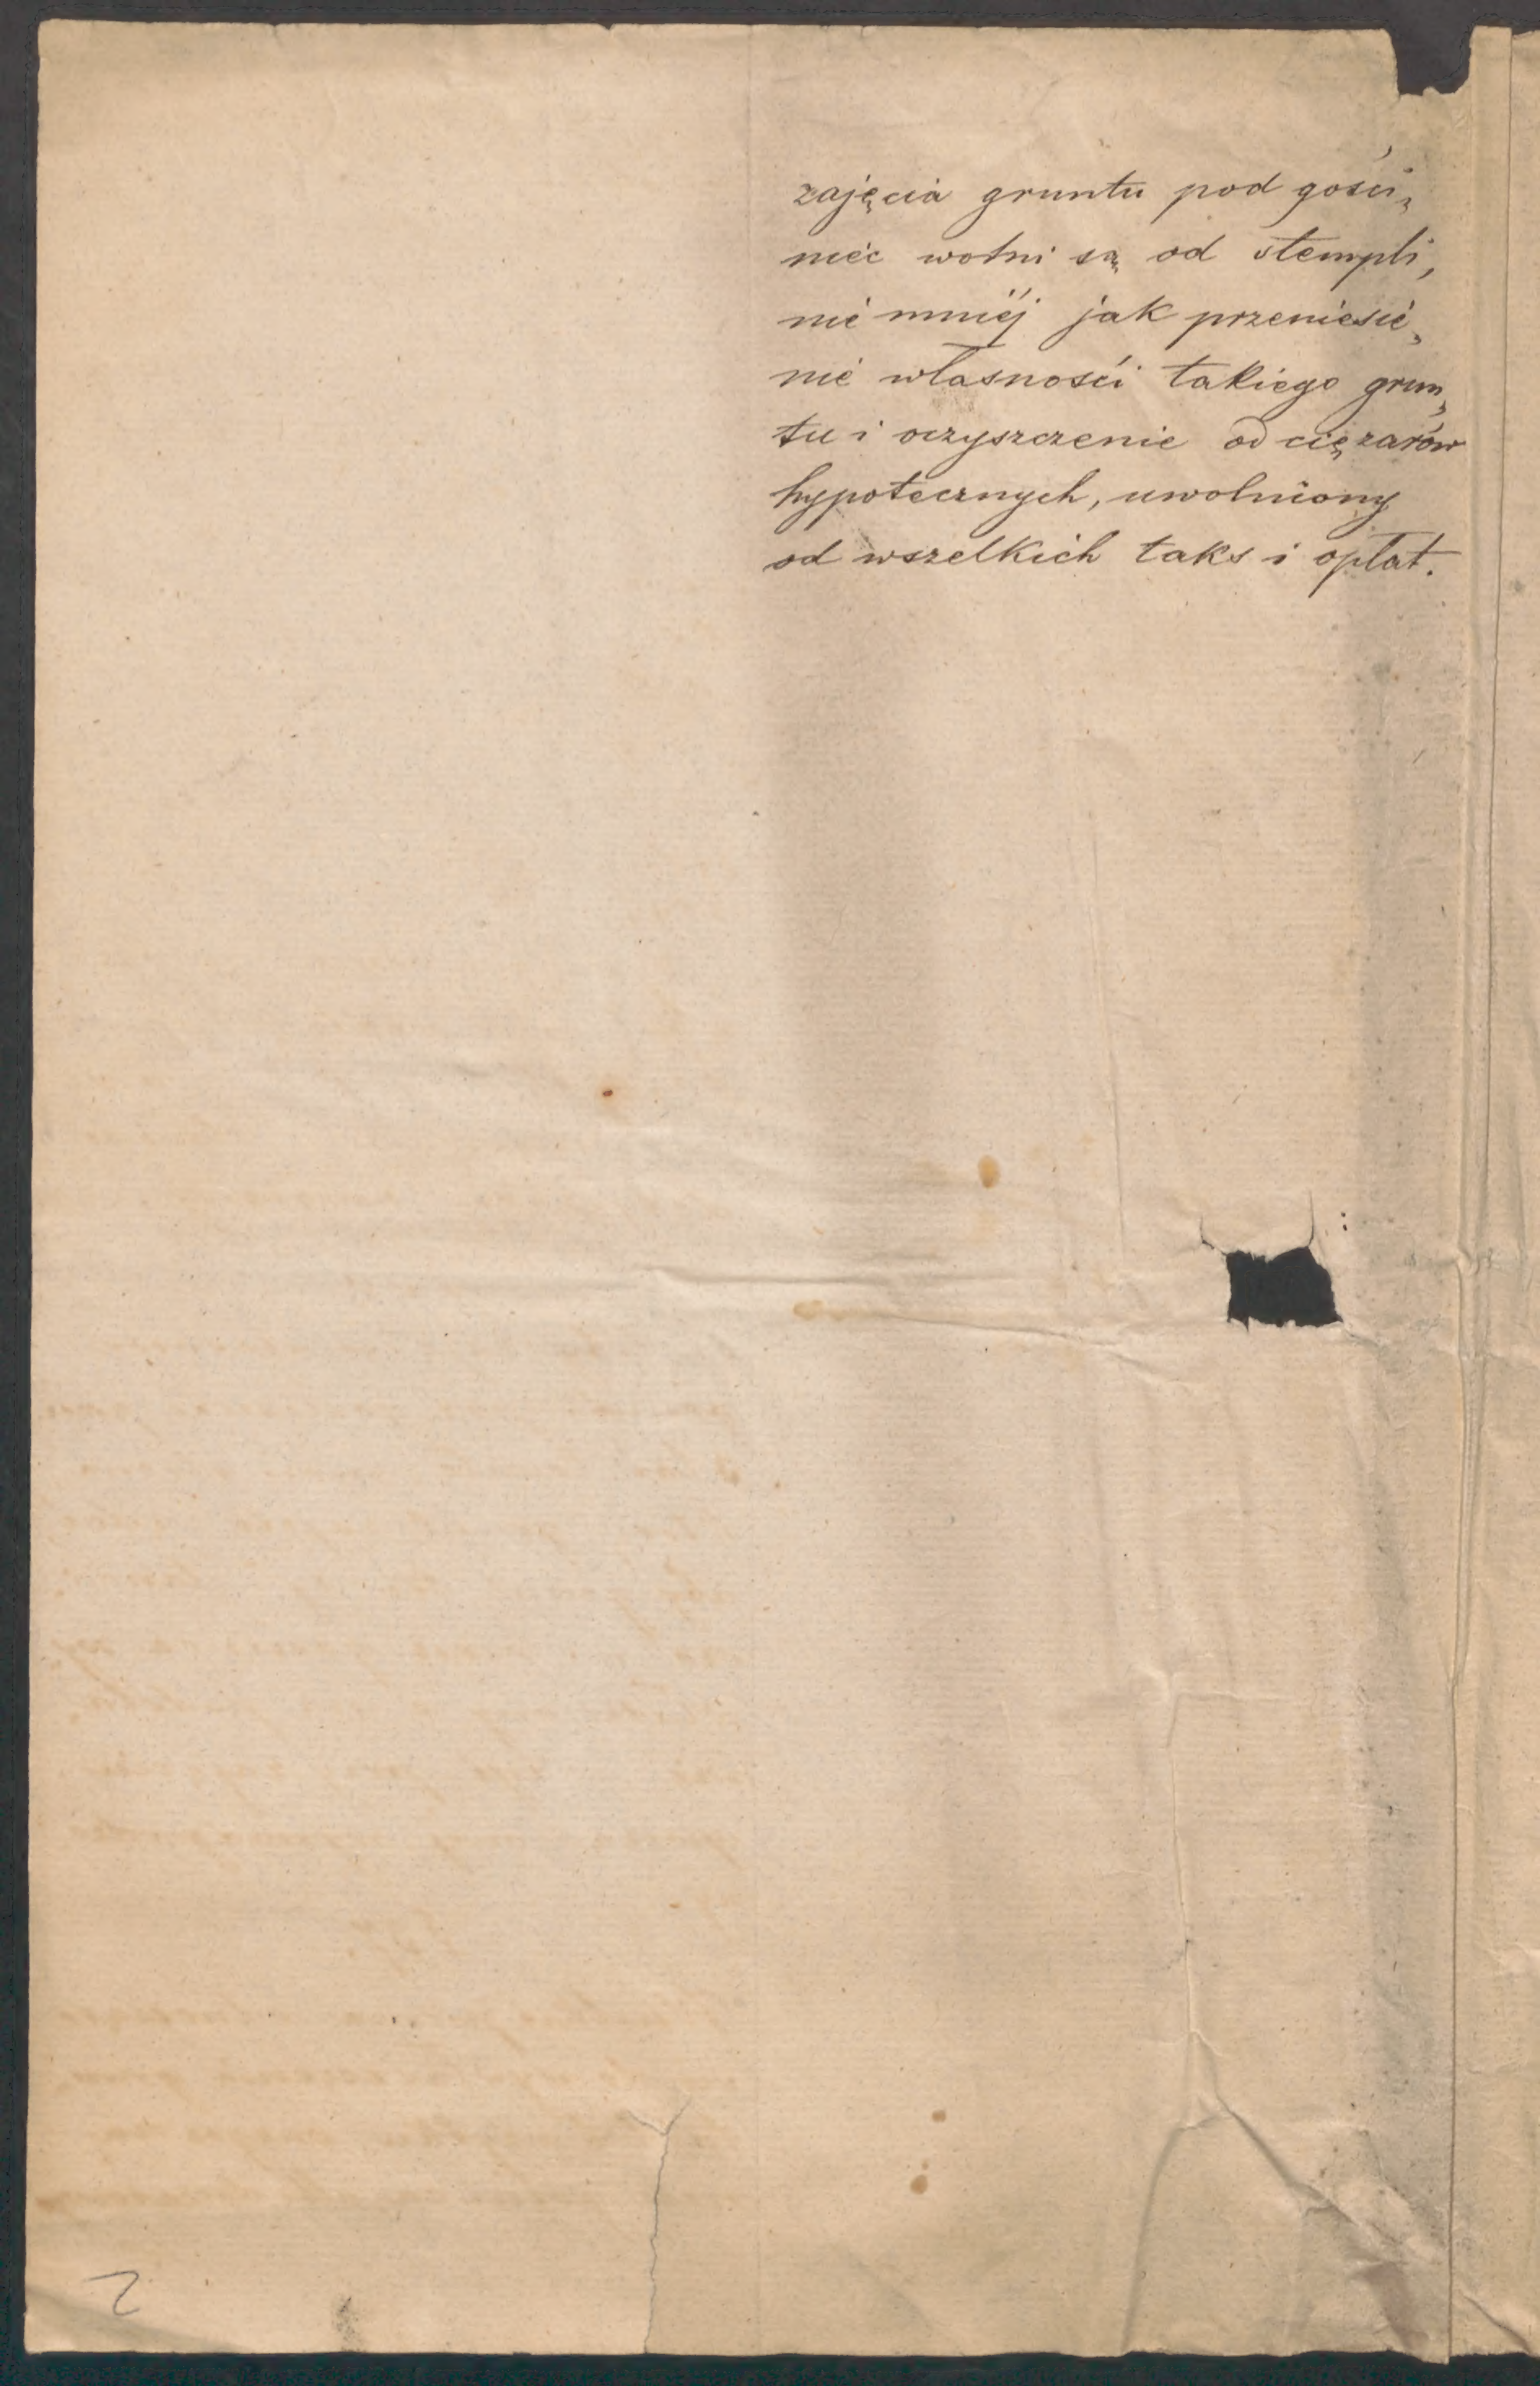 zajęcia gruntu pod gości„
niec wolni są od stempli,
nie mniéj jak przeniesie„
nie własności takiego grun„
tu i oczyszczenie od ciężarów
hypotecznych, uwolniony
od wszelkich taks i opłat.
2